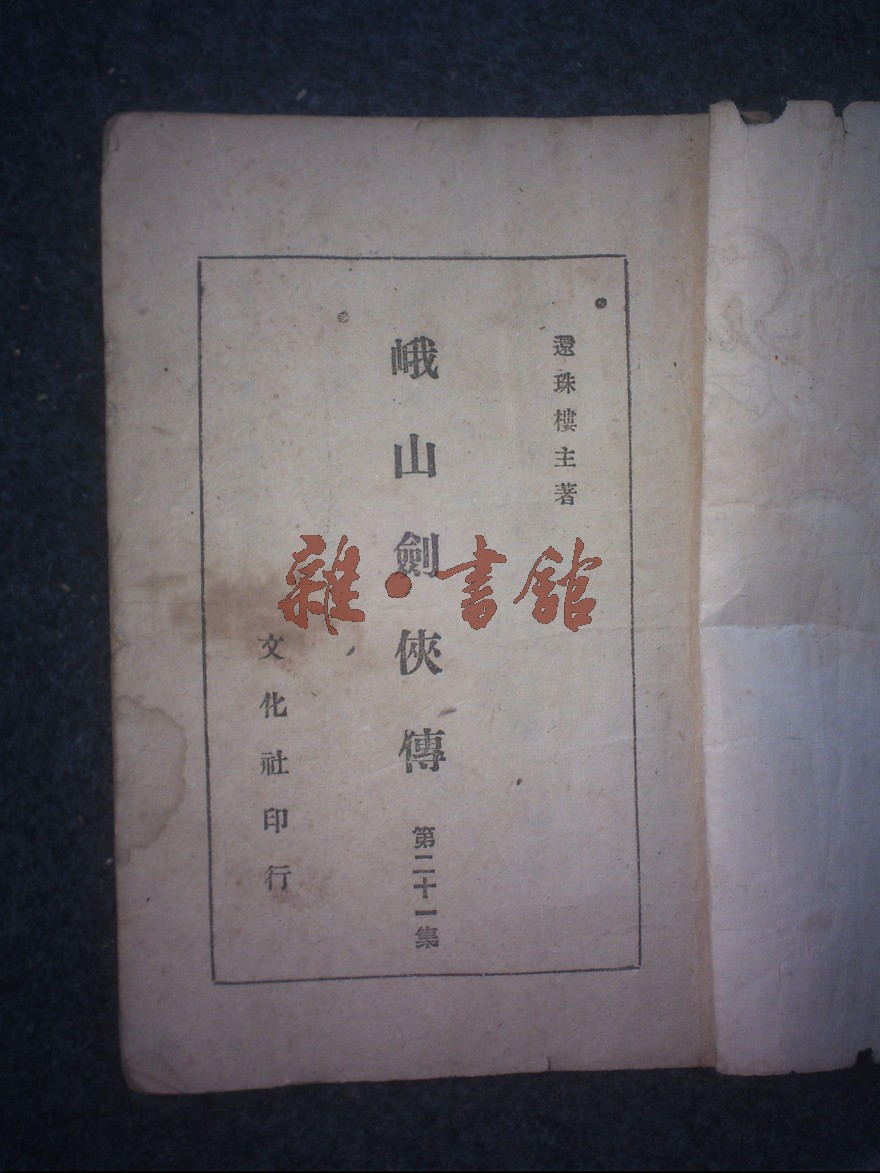 還珠樓主著
峨山劍俠傳
第二十一集
文化社印行
雜·書館